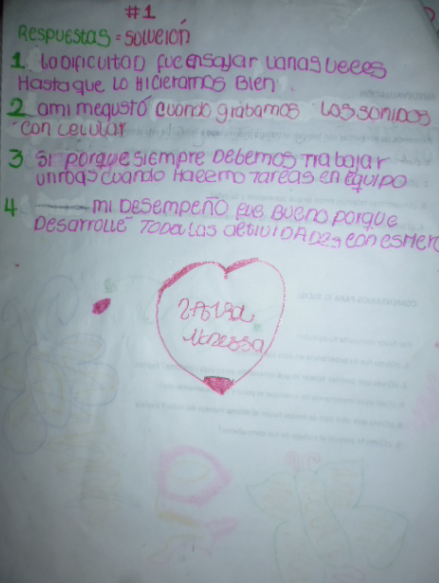 #1
Respuestas = solución
1 La dificultad fue ensayar varias veces
Hasta que Lo Hicieramos Bien.
2 ami me gustó cuando grabamos Los sonidos
con celular
3 si porque siempre Debemos Trabajar
unidas cuando Hacemo Tareas en Equipo
4 mi Desempeño fue Bueno porque
Desarrollé Todas Las actividades con esmero
Vanessa